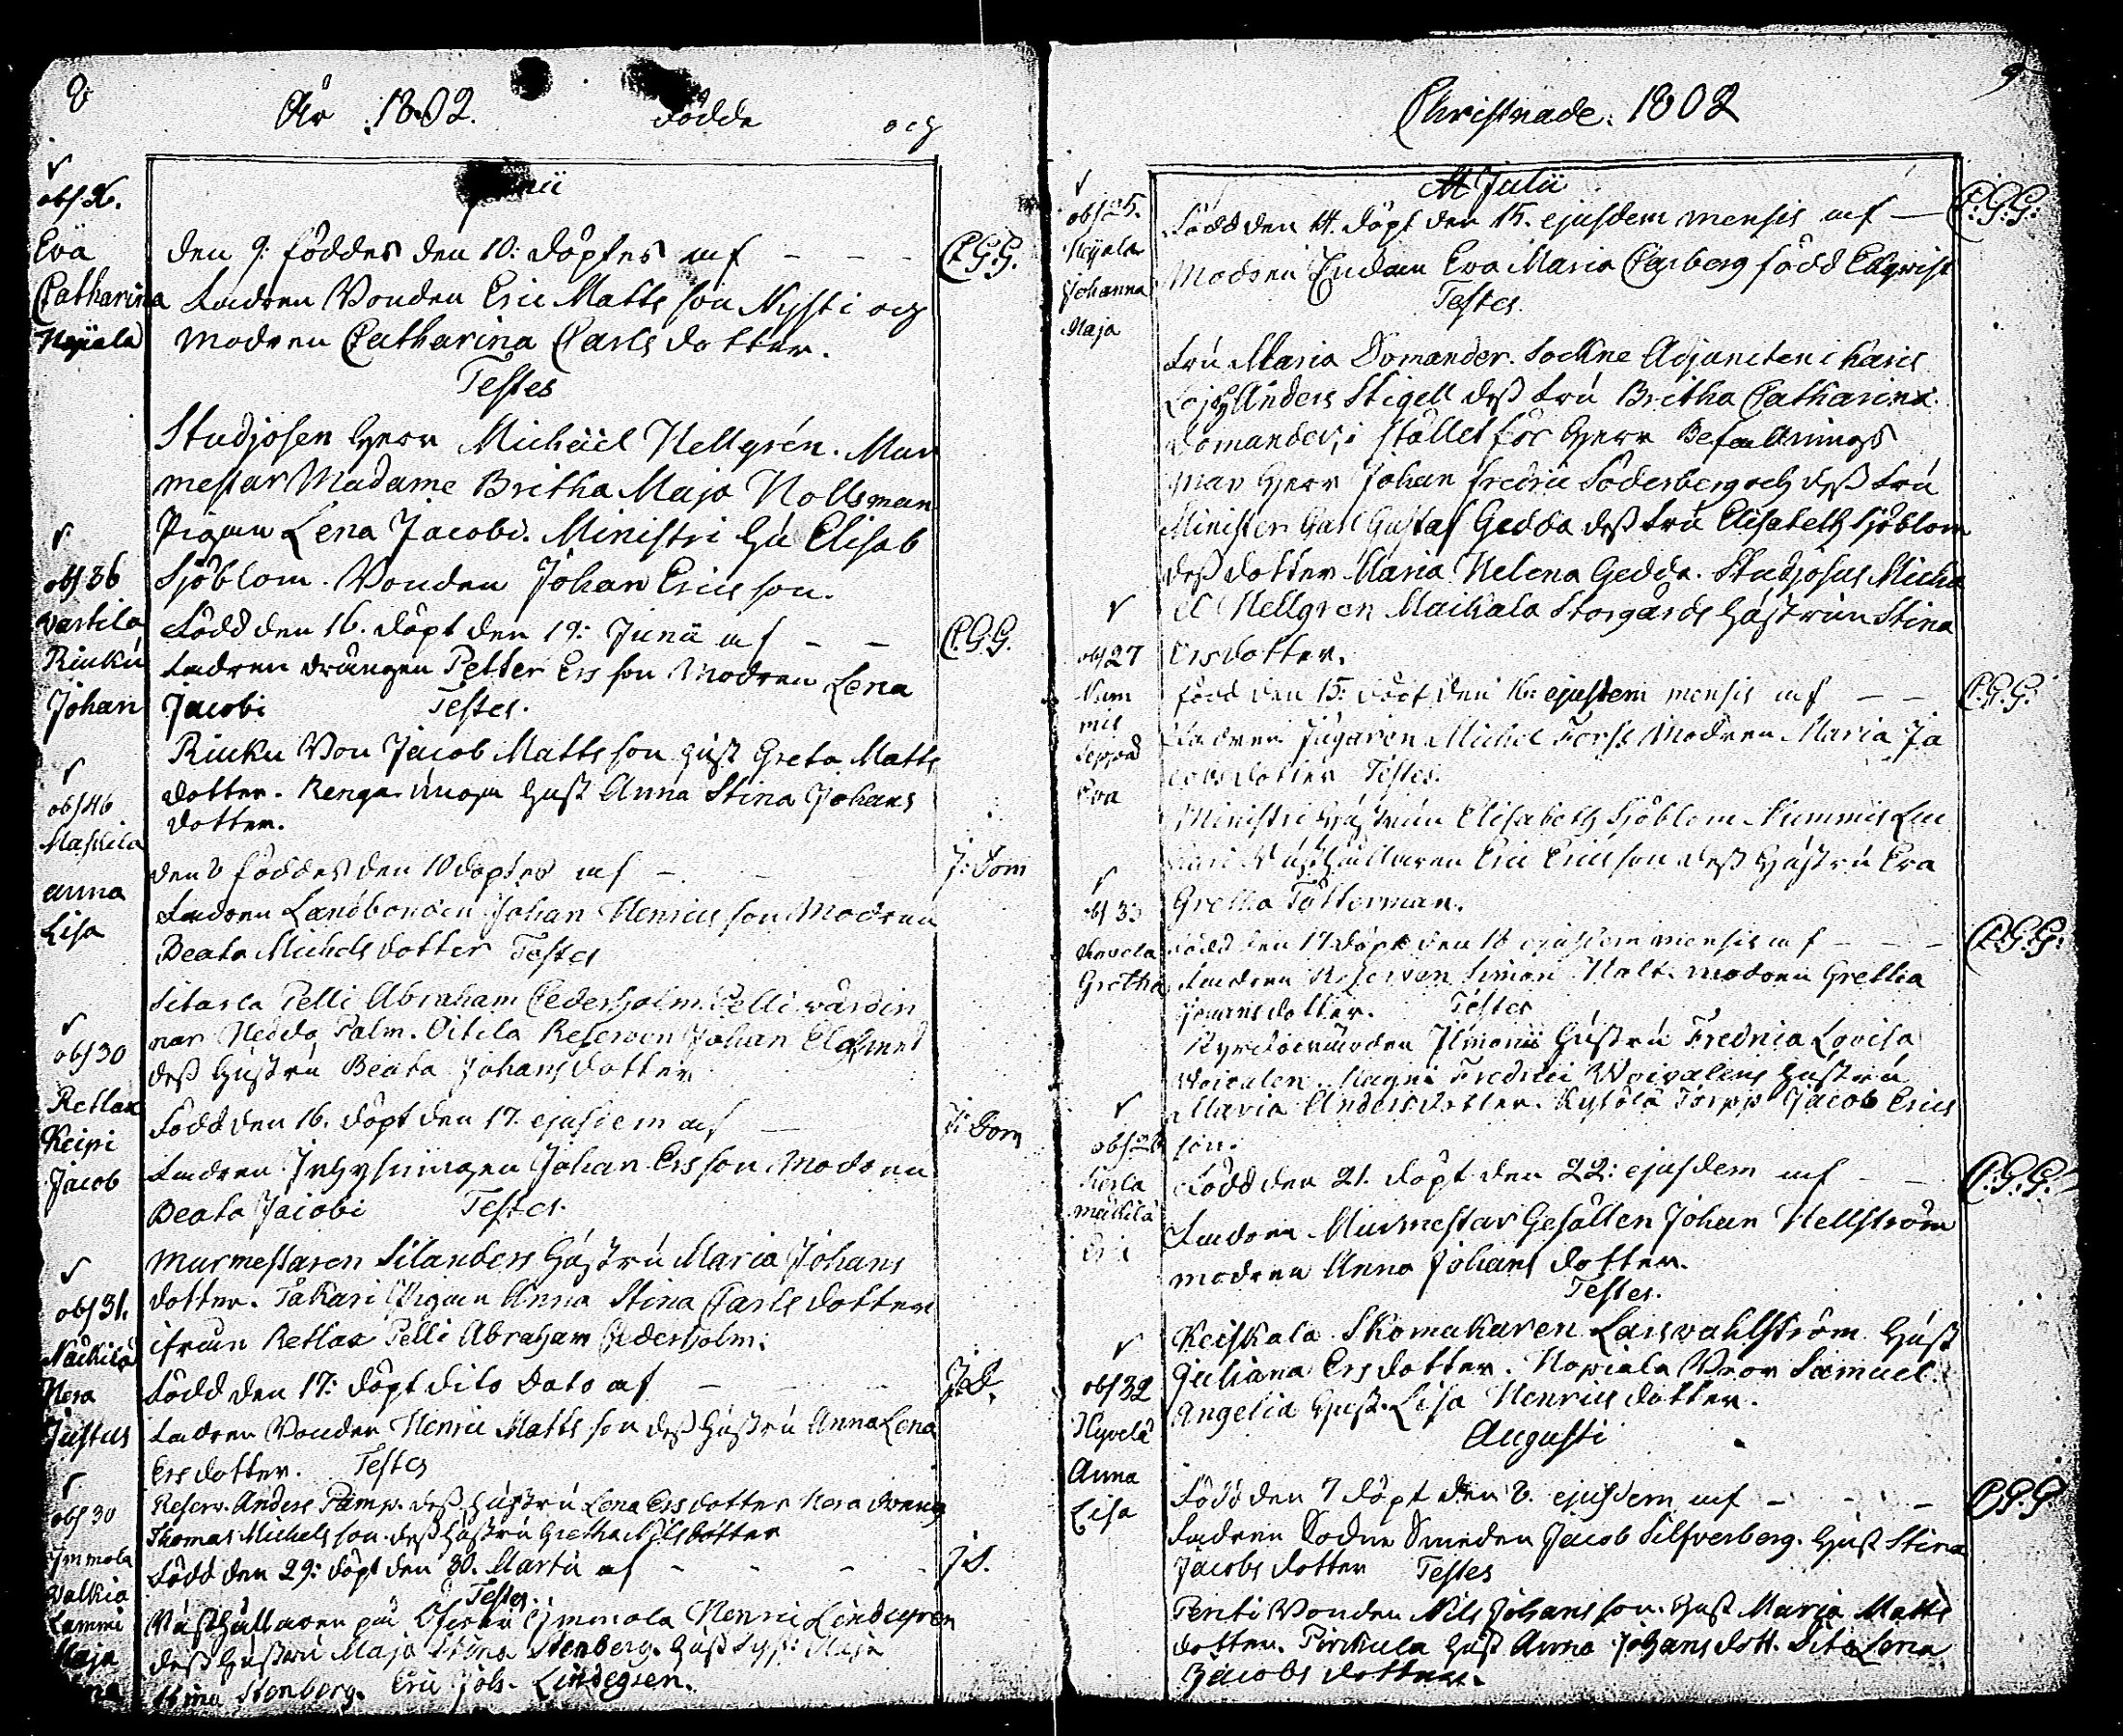 8
År 1802. Födde och
Junii
obs 26.
Eva
Catharina
Nopiala
den 9: föddes den 10: döptes af - - - C.G.G.
Fadren Bonden Eric Mattsson Nysti och
Modren Catharina Carlsdotter.
Testes
Studjosen Herr Michäel Hellgrén. Mur
mestar Madame Britha Maja Hollsman
Pigan Lena Jacobi. Ministri Hu Elisab
Sjöblom. Bonden Johan Ericsson.
obs 36
Vartila
Riuku
Johan
Född den 16. döpt den 19: Junii af - - C.G.G.
Fadren drängen Petter Ersson Modren Lena
Jacobi Testes.
Riuku Bon Jacob Mattsson Hust Greta Matts
dotter. Renga Hust Anna Stina Johans
dotter.
obs 46
Maskila
anna
Lisa
den 8 föddes den 10 döptes af - J: Dom
Fadren Landbonden Johan Henricsson Modren
Beata Michelsdotter Testes
Pelli Abraham Cederholm. Pelli värdin
nan Hedda Palm. Oitila Reserven Johan
dess Hustru Beata Johansdotter
obs 30
Retlax
Keipi
Jacob
Född den 16. döpt den 17. ejusdem af - J: Dom
Fadren Inhysningen Johan Ersson Modren
Beata Jacobi Testes.
Murmestaren Silanders Hustru Maria Johans
dotter. Takari Pigan Anna Stina Carlsdotter
ifrån Retlax Pelli Abraham Cederholm.
obs 31.
Näckilä
Hera
Justus
Född den 17: döpt dito Dato af - J.D.
Fadren Bonden Henric Mattsson dess Hustru Anna Lena
Ersdotter. Testes
Reserv. Anders Pamp. dess Hustru Lena Ersdotter Hera dreng
Thomas Michelsson dess Hustru Gretha Nilsdotter
obs 30
Immola
Valkia
Lammi
Maja
Född den 29: döpt den 30. Martii af - - - J.D.
Testes.
på Immola Henric Lindegren
dess Hustru Maja Stina Stenberg. Maja
Stina Stenberg. Eric Joh. Lindegren.
9
Christnade. 1802
M Julii
obs 25.
Johanna
Maja
Född den 14. döpt den 15. ejusdem mensis af — C.G.G.
Modren Eva Maria Carberg född Ekqvist
Testes.
Fru Maria Domander. Sockne Adjuncten i Karis
Lojo Anders Stigell dess Fru Britha Catharina
Domander, i stället för Herr Befallnings
man Herr Johan Fredric Söderberg och dess Fru
Minister Carl Gustaf Gedda dess Fru Elisabeth Sjöblom
dess dotter Maria Helena Gedda. Studjosus Micha
el Hellgren Maikala Storgårds Hustrun Stina
Ersdotter.
obs 27
Num
mis
Seppä
Eva
född den 15: döpt den 16: ejusdem mensis af - - C.G.G.
Fadren Jägaren Michel Forss Modren Maria Ja
cobsdotter Testes.
Ministri Hustrun Elisabeth Sjöblom Nummis
Eric Ericsson dess Hustru Eva
Gretha Tötterman.
obs 33
Gretha
född den 17 döpt den 18 ejusdem mensis af - - - C.G.G.
Fadren Reserven Simon Halt. Modren Gretha
dotter. Testes
Hustru Fredrica Lovisa
Fredrici Hustru
Maria Andersdotter. Kylölä Torpp Jacob Erics
son.
obs 28
Eric
Född den 21. döpt den 22: ejusdem af - - C.G.G.
Fadren Murmestar Gesällen Johan Hellström
modren Anna Johansdotter.
Testes.
Keiskala Skomakaren Lars Wahlström Hust
Juliana Ersdotter. Nopiala Samuel
Angelia Hust. Lisa Henricsdotter.
Augusti
obs 32
Hyvelä
Anna
Lisa
Född den 7 döpt den 8. ejusdem af - - - C.G.G
Fadren Sockne Smeden Jacob Silfverberg. Hust Stina
Jacobsdotter Testes
Pentti Bonden Nils Johansson. Hust Maria Matts
dotter. Pirkula Hust Anna Johansdott. Dito Lena
Jacobsdotter.